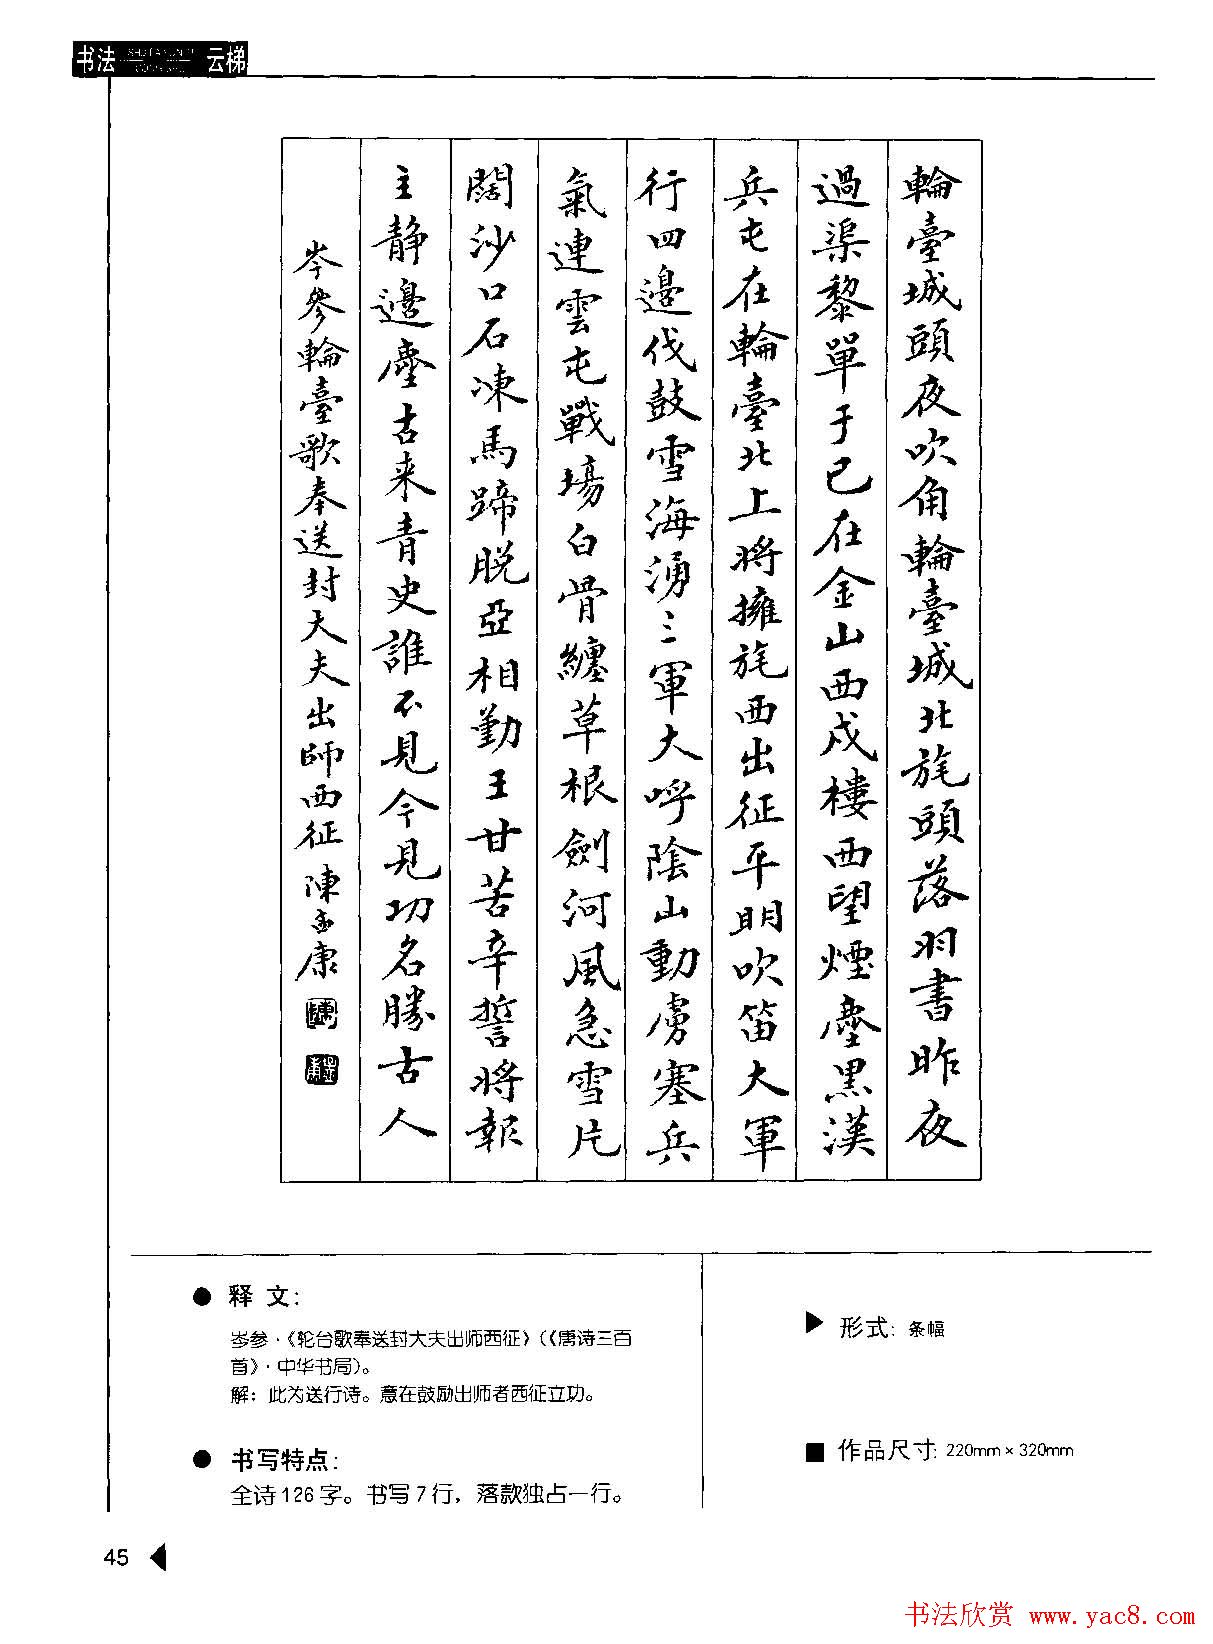 书法 云梯
輪臺城頭夜吹角輪臺城北旄頭落羽書昨夜
過渠黎單于已在金山西戍樓西望煙塵黑漢
兵屯在輪臺北上將擁旄西出征平明吹笛大軍
行四邊伐鼓雪海湧三軍大呼陰山動虜塞兵
氣連雲屯戰場白骨纏草根劍河風急雪片
闊沙口石凍馬蹄脱亞相勤王甘苦辛誓將報
主静邊塵古来青史誰不見今見功名勝古人
岑參輪臺歌奉送封大夫出師西征 陳康
● 释 文:
岑参·《轮台歌奉送封大夫出师西征》(《唐诗三百
首》·中华书局)。
解：此为送行诗。意在鼓励出师者西征立功。
● 书写特点:
全诗126字。书写7行，落款独占一行。
▶ 形式: 条幅
■ 作品尺寸: 220mm×320mm
45 ◀
书法欣赏 www.yac8.com